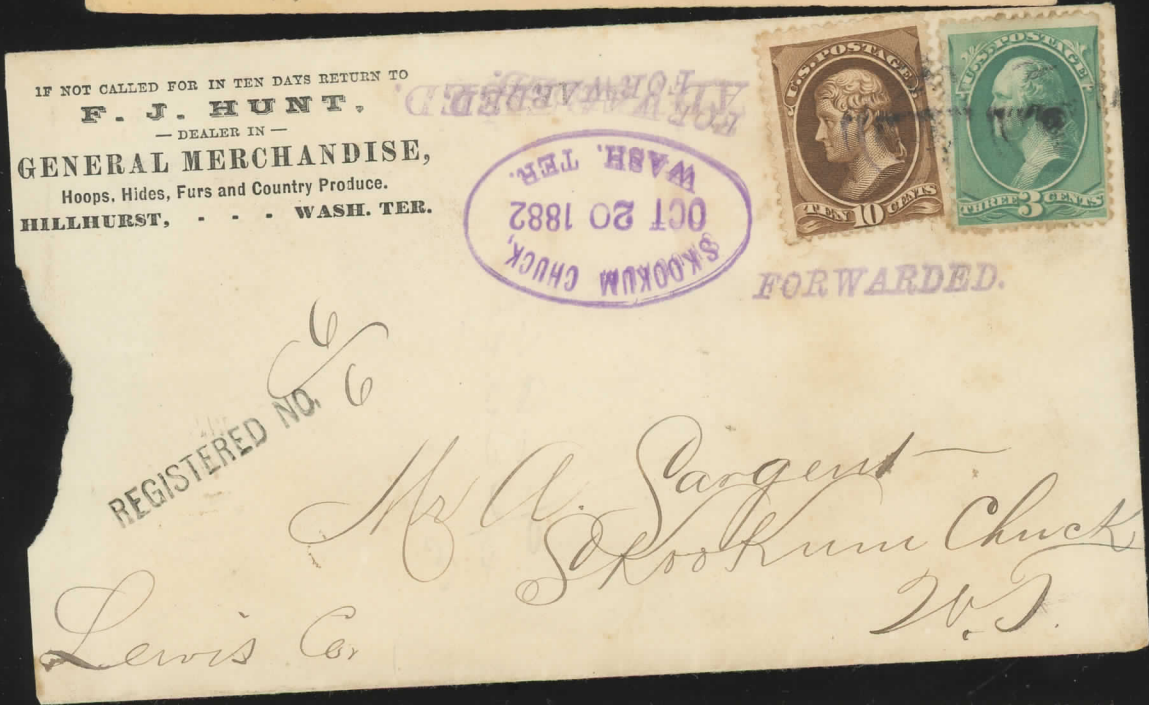 IF NOT CALLED FOR IN TEN DAYS RETURN TO
F. J. HUNT,
— DEALER IN —
GENERAL MERCHANDISE,
Hoops, Hides, Furs and Country Produce.
HILLHURST, - - - WASH. TER.
FORWARDED.
FORWARDED.
SKOOKUM CHUCK,
OCT 20 1882
WASH. TER.
U.S. POSTAGE
TEN 10 CENTS
U.S. POSTAGE
THREE 3 CENTS
FORWARDED.
6/6
REGISTERED NO.
Mr A. Sargent
Skookum Chuck
W.T.
Lewis Co.